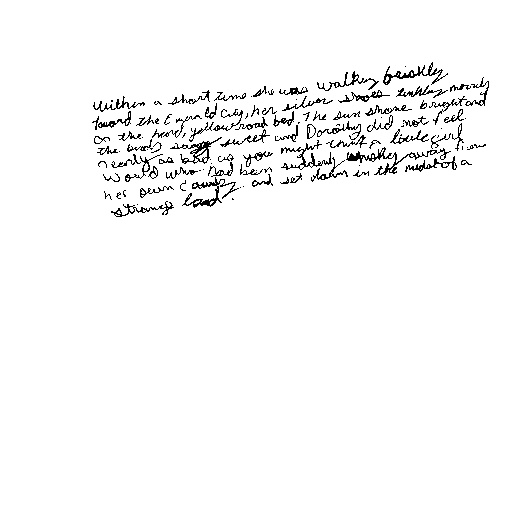 Within a short time she was walking briskly
toward the Emerald City, her silver shoes tinkling merrily
on the hard, yellow road bed. The sun shone bright and
the birds sang sweet and Dorothy did not feel
nearly as bad as you might think a little girl
would who had been suddenly whisked away from
her own country and set down in the midst of a
strange land.